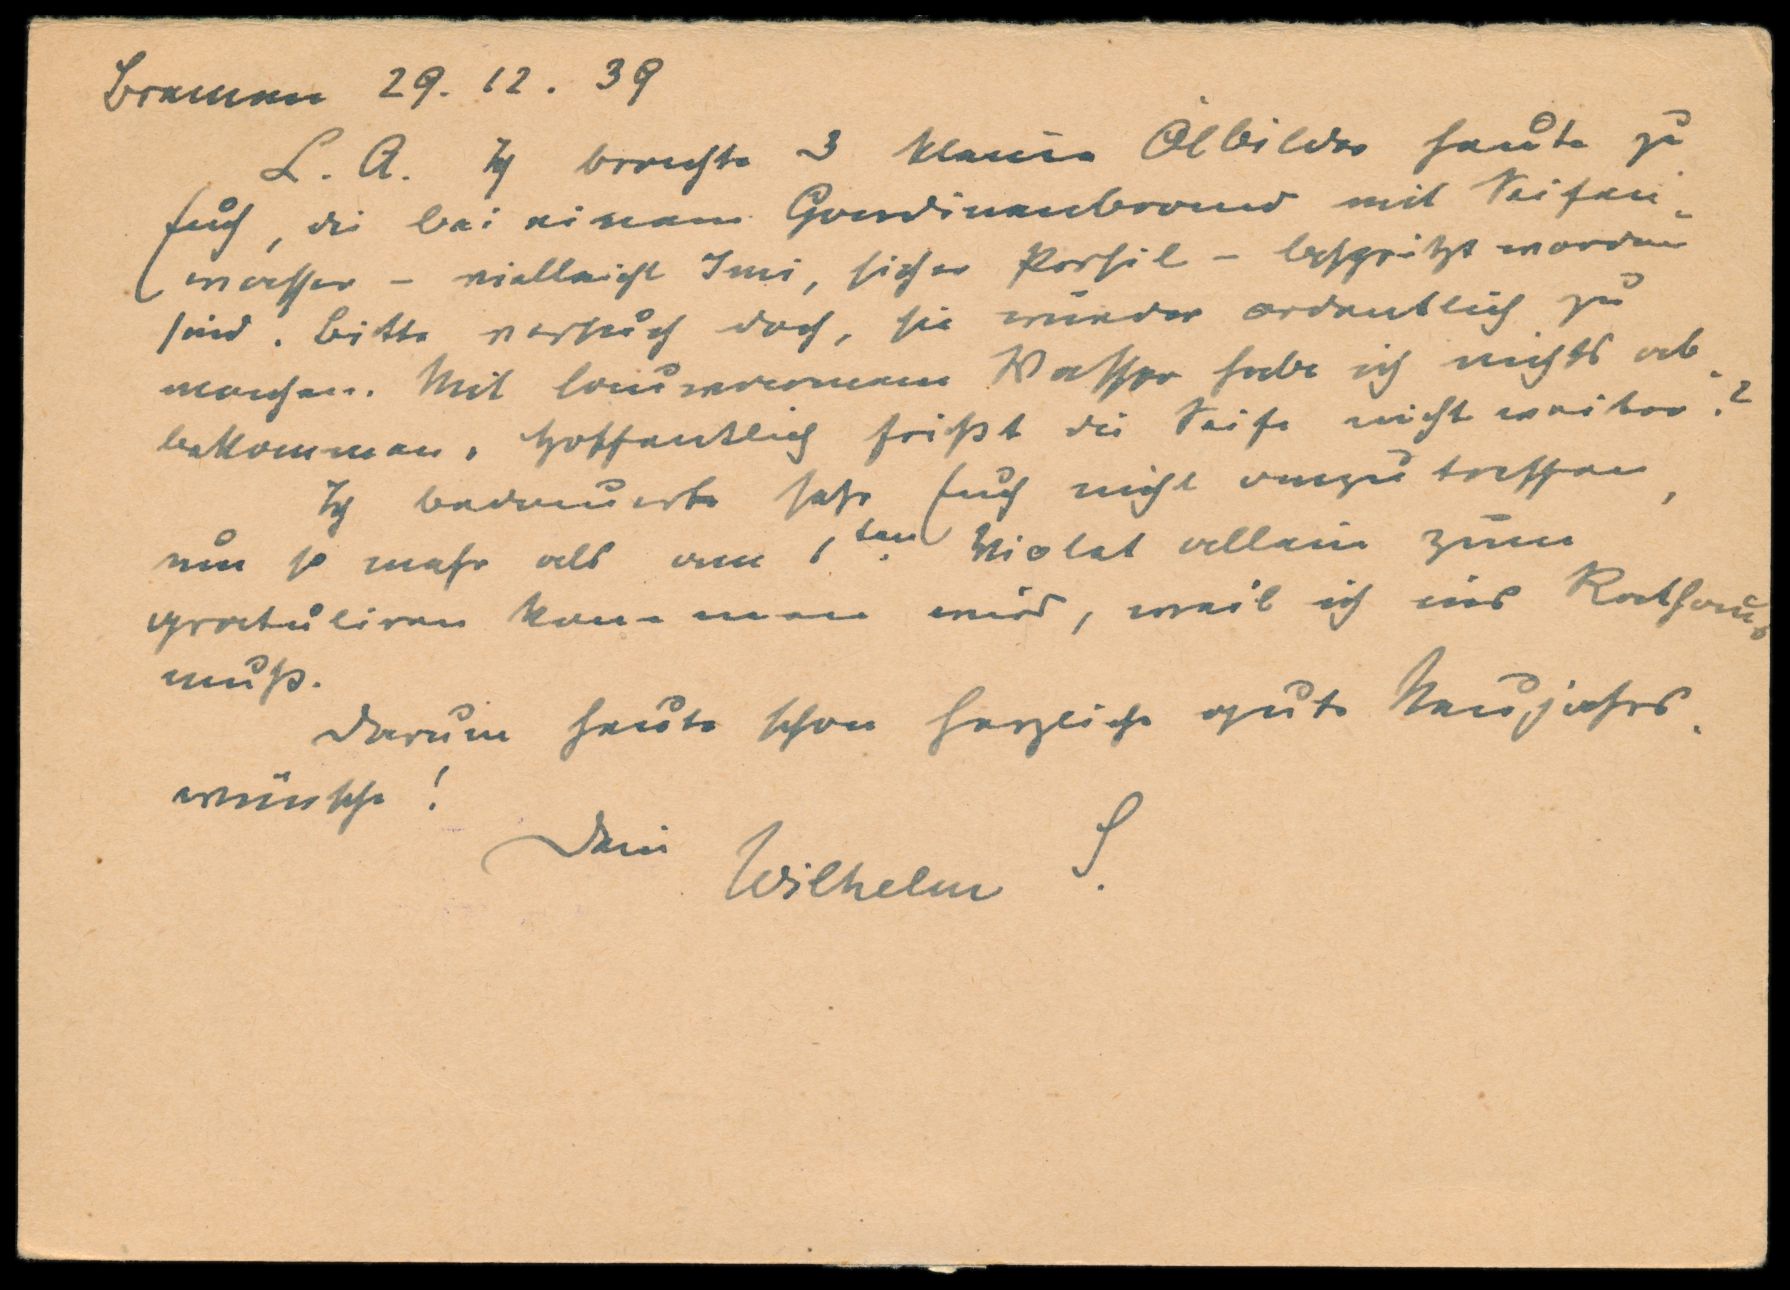 Bremen 29. 12. 39
L. A. Ich brachte 3 kleine Ölbilder heute zu
Euch, die bei einem Gardinenbrand mit Seifen-
wasser – vielleicht Imi, sicher Persil – bespritzt worden
sind. Bitte versuch doch, sie wieder ordentlich zu
machen. Mit lauwarmem Wasser habe ich nichts ab-
bekommen. Hoffentlich frißt die Seife nicht weiter.?
Ich bedauerte sehr Euch nicht anzutreffen,
um so mehr als am 1ten. Violet allein zum
gratuliren kommen wird, weil ich ins Rathaus
muß.
Darum heute schon herzliche gute Neujahrs-
wünsche!
Dein Wilhelm S.